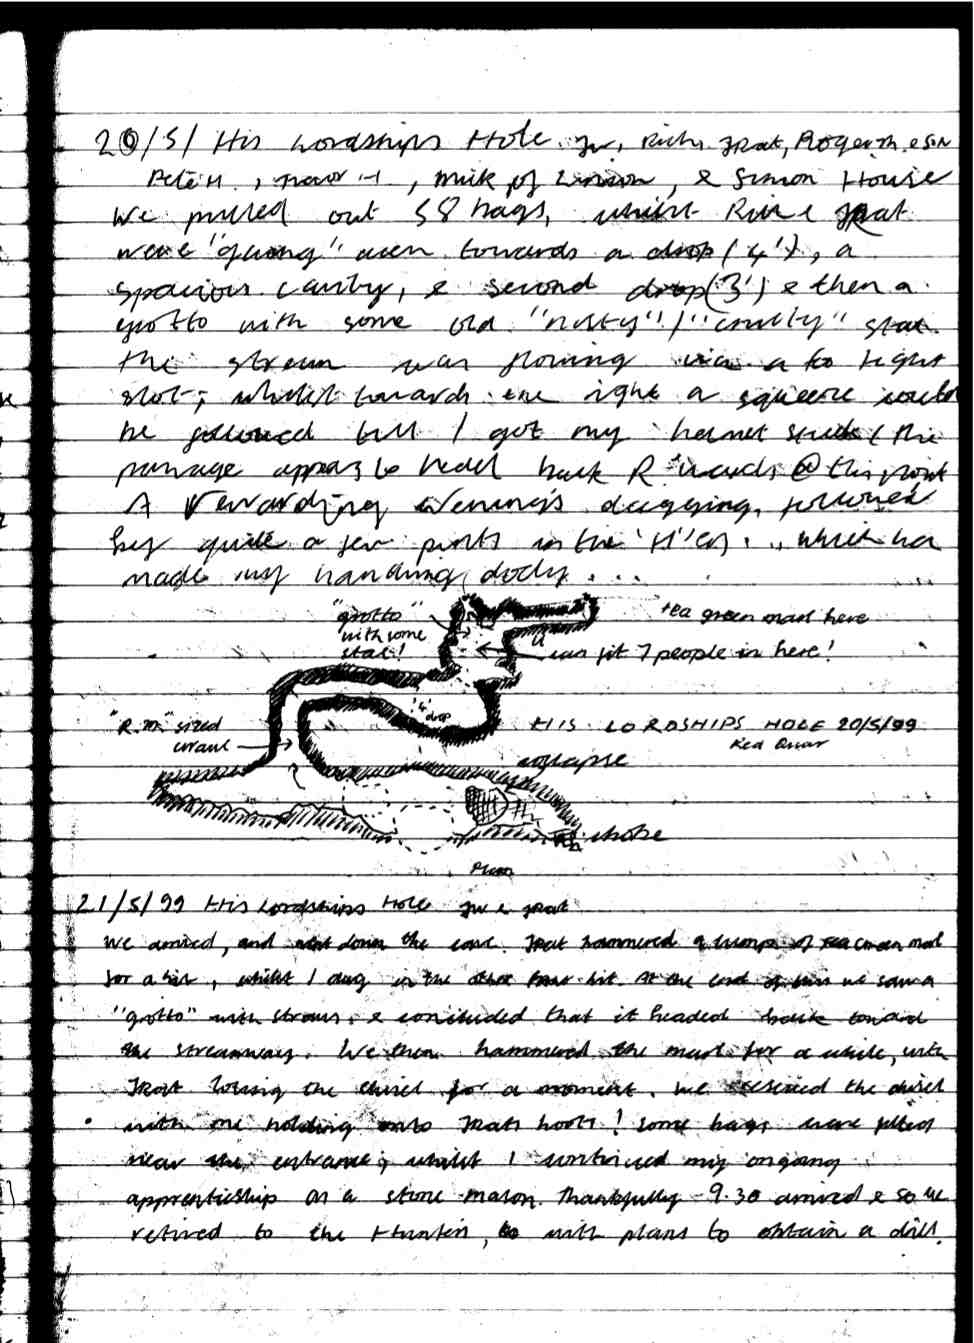 20/5/ His Lordships Hole. JW, Rich, JRat, Roger M. & Son
Pete H, Trevor H, Mike & Simon House
We pulled out 58 bags, whilst Rich & JRat
were "going" down towards a drop (4'), a
spacious cavity, & second drop (3') & then a
grotto with some old "rusty"/"crusty" stal.
The stream was flowing via a to tight
slot; whilst towards the right a squeeze could
be followed till I got my helmet stuck (the
passage appears to head back R wards @ this point
A rewarding evenings digging, followed
by quite a few pints in the 'H'ers... which has
made my handing dodgy...
"grotto" with some stal!
tea green marl here
can fit 7 people in here!
4' drop
"R.M." sized crawl
HIS LORDSHIPS HOLE 20/5/99
collapse
choke
Plan
21/5/99 His Lordships Hole JW & JRat
We arrived, and went down the cave. JRat hammered a lump of tea green marl
for a bit, whilst I dug in the other bit. At the end of this we saw a
"grotto" with straws, & concluded that it headed back toward
the streamway. We then hammered the marl for a while, with
JRat losing the chisel for a moment. We rescued the chisel
with me holding onto JRats boots! Some bags were filled
near the entrance; whilst I continued my ongoing
apprenticeship as a stone mason. Thankfully 9.30 arrived & so we
retired to the Hunters, with plans to obtain a drill.